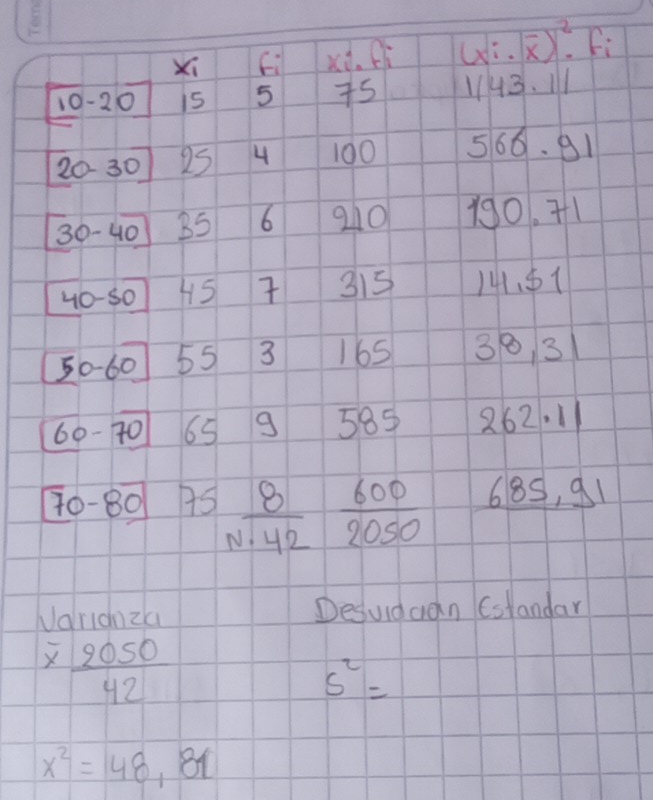 xi fi xi.fi (xi.x̄)². fi
[10-20] 15 5 75 1143.11
[20-30] 25 4 100 566.91
[30-40] 35 6 210 190.71
[40-50] 45 7 315 14,51
[50-60] 55 3 165 38,31
[60-70] 65 9 585 262.11
[70-80] 75 8 600 685,91
N. 42 2050
Varianza Desviación Estandar
x̄ 2050
42
s² =
x² = 48, 81